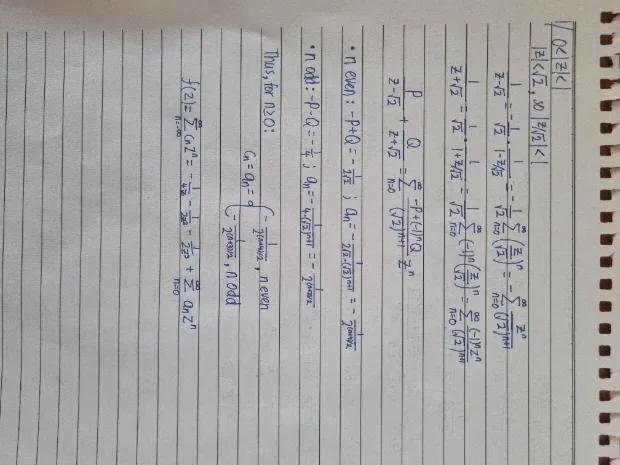 0<|z|<1
|z|<√2, so |z/√2|<1
1/(z-√2) = -1/√2 · 1/(1-z/√2) = -1/√2 ∑_{n=0}^{∞} (z/√2)^n = -∑_{n=0}^{∞} z^n/(√2)^{n+1}
1/(z+√2) = 1/√2 · 1/(1+z/√2) = 1/√2 ∑_{n=0}^{∞} (-1)^n (z/√2)^n = ∑_{n=0}^{∞} (-1)^n z^n/(√2)^{n+1}
P/(z-√2) + Q/(z+√2) = ∑_{n=0}^{∞} (-P+(-1)^n Q)/(√2)^{n+1} z^n
• n even: -P+Q = -1/(2√2) ; a_n = -1/(2√2·(√2)^{n+1}) = -1/2^{(n+4)/2}
• n odd: -P-Q = -1/4 ; a_n = -1/(4·(√2)^{n+1}) = -1/2^{(n+5)/2}
Thus, for n≥0:
c_n = a_n = { -1/2^{(n+4)/2}, n even
-1/2^{(n+5)/2}, n odd
f(z) = ∑_{n=-∞}^{∞} c_n z^n = -1/4z - 1/2z² - 1/2z³ + ∑_{n=0}^{∞} a_n z^n